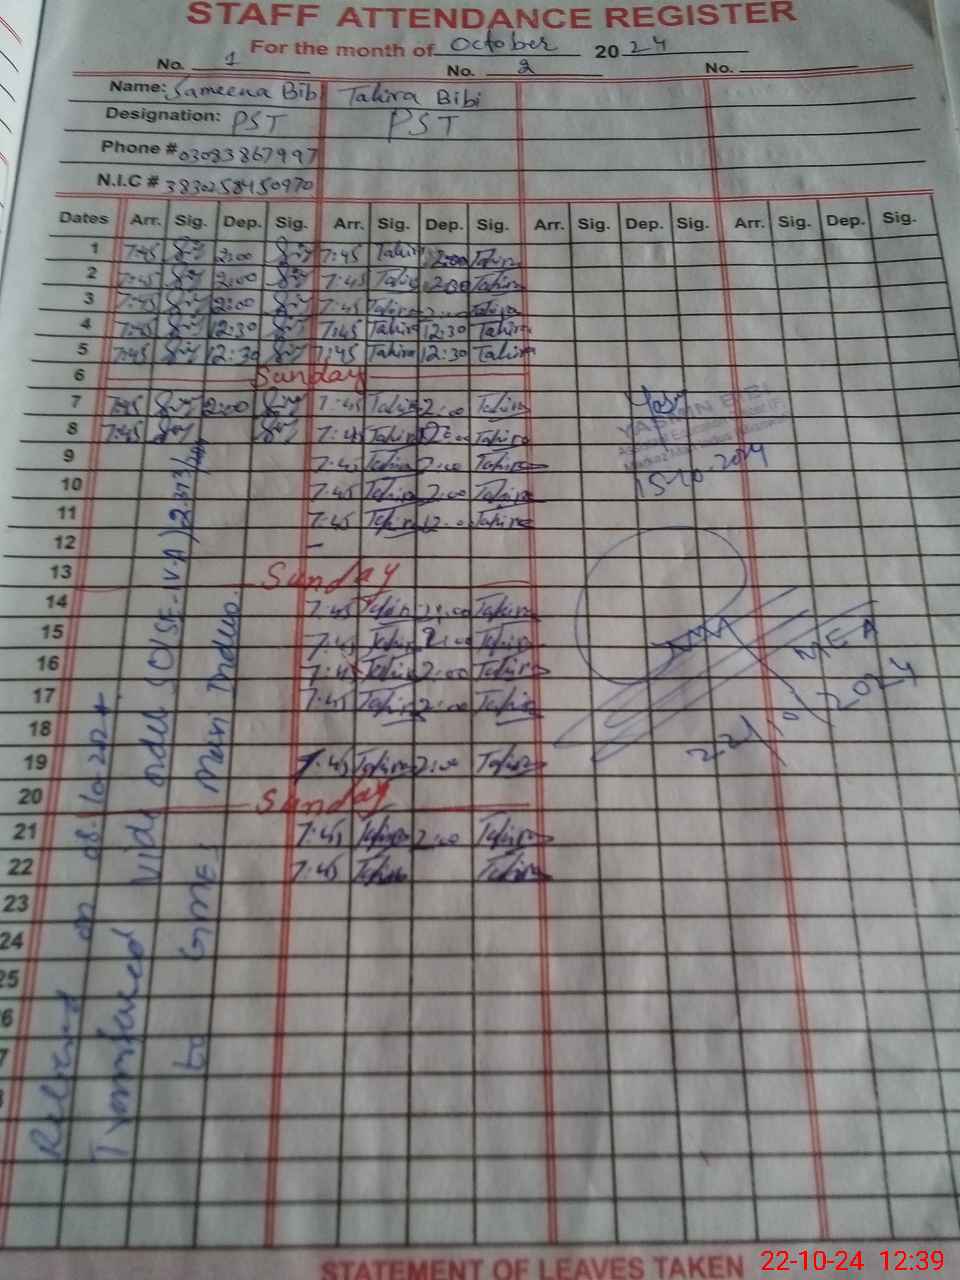 STAFF ATTENDANCE REGISTER
For the month of October 2024
No. 1 No. 2 No.
Name: Sameena Bibi Tahira Bibi
Designation: PST PST
Phone # 03083867997
N.I.C # 3830258450970
Dates Arr. Sig. Dep. Sig. Arr. Sig. Dep. Sig. Arr. Sig. Dep. Sig. Arr. Sig. Dep. Sig.
1 7:45 2:00 7:45 Tahira 2:00 Tahira
2 7:45 2:00 7:45 Tahira 2:00 Tahira
3 7:45 2:00 7:45 Tahira Tahira
4 7:45 12:30 7:45 Tahira 12:30 Tahira
5 7:45 12:30 7:45 Tahira 12:30 Tahira
6 Sunday
7 7:45 2:00 7:45 Tahira 2:00 Tahira
8 7:45 7:45 Tahira Tahira
9 7:45 Tahira 2:00 Tahira
10 7:45 Tahira 2:00 Tahira
11 7:45 Tahira Tahira
12 -
13 Sunday
14 7:45 Tahira 2:00 Tahira
15 7:45 Tahira 2:00 Tahira
16 7:45 Tahira 2:00 Tahira
17 7:45 Tahira 2:00 Tahira
18
19 7:45 Tahira 2:00 Tahira
20 Sunday
21 7:45 Tahira 2:00 Tahira
22 7:45 Tahira Tahira
23
24
25
6
7
Relieved on 08-10-2024.
Vide order
to
YASMIN BIBI
15-10-2024
MEA
22/10/2024
STATEMENT OF LEAVES TAKEN
22-10-24 12:39